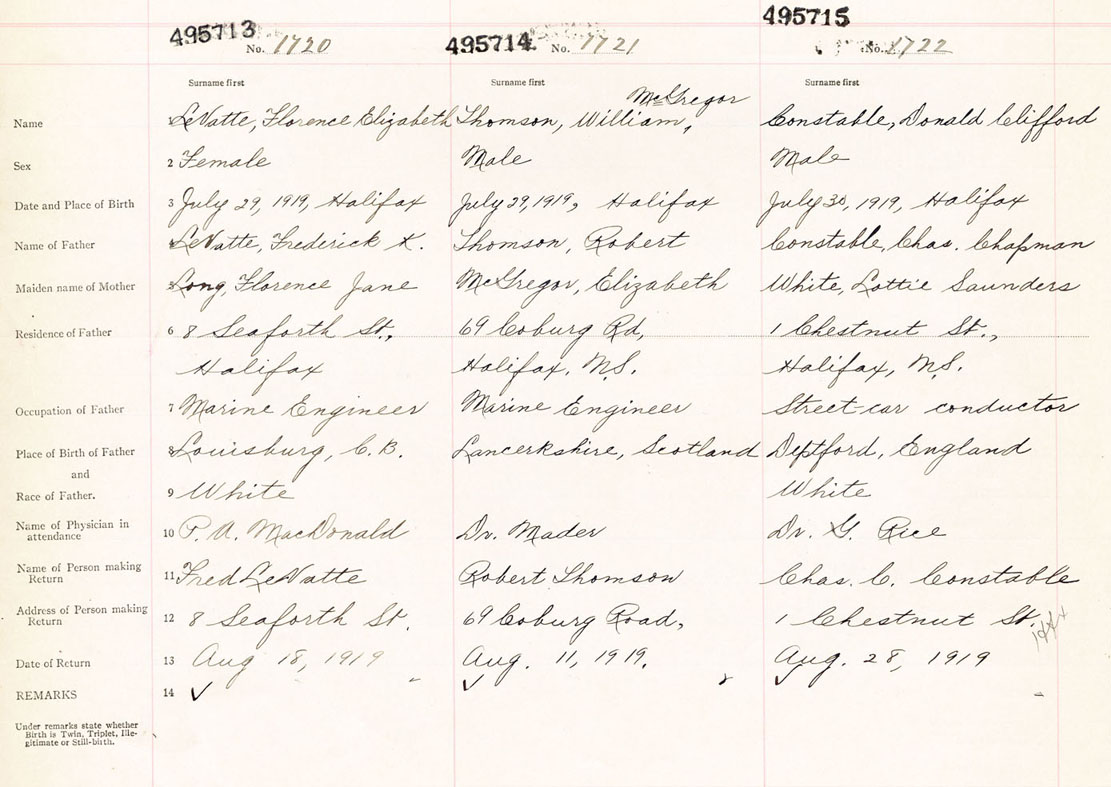 495713 495714 495715
No. 1720 No. 1721 No. 1722
Surname first Surname first Surname first
McGregor
Name 1 LeVatte, Florence Elizabeth Thomson, William, Constable, Donald Clifford
Sex 2 Female Male Male
Date and Place of Birth 3 July 29, 1919, Halifax July 29, 1919, Halifax July 30, 1919, Halifax
Name of Father LeVatte, Frederick K. Thomson, Robert Constable, Chas. Chapman
Maiden name of Mother 5 Long, Florence Jane McGregor, Elizabeth White, Lottie Saunders
Residence of Father 6 8 Seaforth St., 69 Coburg Rd, 1 Chestnut St.,
Halifax Halifax, N.S. Halifax, N.S.
Occupation of Father 7 Marine Engineer Marine Engineer Street-car conductor
Place of Birth of Father 8 Louisburg, C.B. Lancerkshire, Scotland Deptford, England
and
Race of Father. 9 White White
Name of Physician in
attendance 10 P. A. MacDonald Dr. Mader Dr. G. Rice
Name of Person making
Return 11 Fred LeVatte Robert Thomson Chas. C. Constable
Address of Person making
Return 12 8 Seaforth St. 69 Coburg Road, 1 Chestnut St.
Date of Return 13 Aug 18, 1919 Aug. 11, 1919. Aug. 28, 1919
REMARKS 14 ✓ ✓ ✓
Under remarks state whether
Birth is Twin, Triplet, Ille-
gitimate or Still-birth.